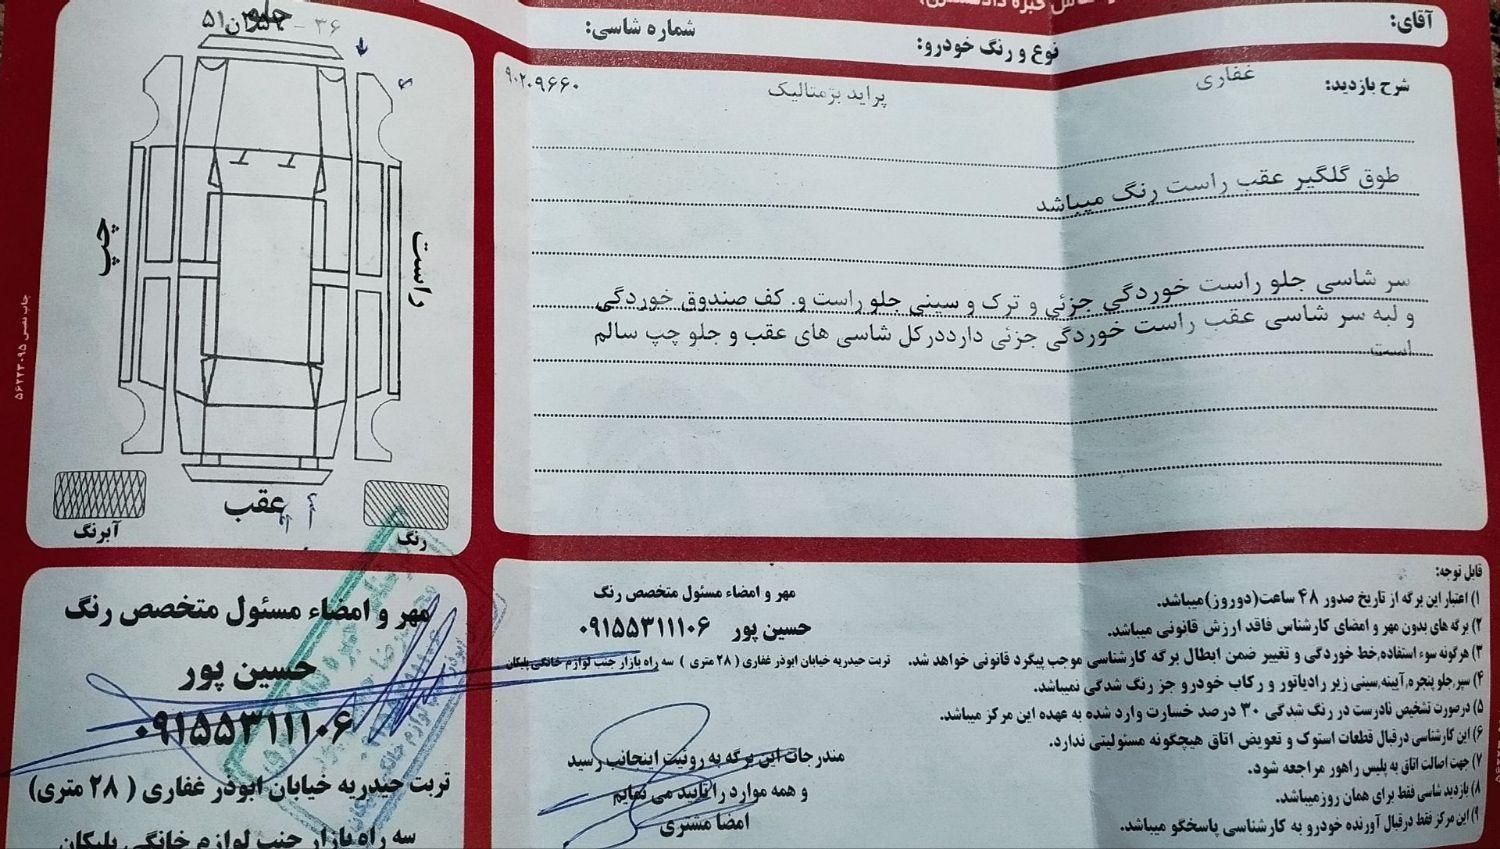 آقای:
نوع و رنگ خودرو:
شماره شاسی:
شرح بازدید:
غفاری
پراید بژمتالیک
طوق گلگیر عقب راست رنگ میباشد
سر شاسی جلو راست خوردگی جزئی و ترک و سینی جلو راست و. کف صندوق خوردگی
و لبه سر شاسی عقب راست خوردگی جزئی دارددرکل شاسی های عقب و جلو چپ سالم
است
جلو
چپ
راست
عقب
آبرنگ
رنگ
قابل توجه:
۱) اعتبار این برگه از تاریخ صدور ۴۸ ساعت(دوروز)میباشد.
۲) برگه های بدون مهر و امضای کارشناس فاقد ارزش قانونی میباشد.
۳) هرگونه سوء استفاده,خط خوردگی و تغییر ضمن ابطال برگه کارشناسی موجب پیگرد قانونی خواهد شد.
۴) سپر,جلو پنجره,آیینه,سینی زیر رادیاتور و رکاب خودرو جز رنگ شدگی نمیباشد.
۵) درصورت تشخیص نادرست در رنگ شدگی ۳۰ درصد خسارت وارد شده به عهده این مرکز میباشد.
۶) این کارشناسی درقبال قطعات استوک و تعویض اتاق هیچگونه مسئولیتی ندارد.
۷) جهت اصالت اتاق به پلیس راهور مراجعه شود.
۸) بازدید شاسی فقط برای همان روزمیباشد.
۹) این مرکز فقط درقبال آورنده خودرو به کارشناسی پاسخگو میباشد.
مهر و امضاء مسئول متخصص رنگ
حسین پور ۰۹۱۵۵۳۱۱۱۰۶
تربت حیدریه خیابان ابوذر غفاری ( ۲۸ متری ) سه راه بازار جنب لوازم خانگی پلیکان
مندرجات این برگه به رویت اینجانب رسید
و همه موارد را تایید می نمایم
امضا مشتری
مهر و امضاء مسئول متخصص رنگ
حسین پور
۰۹۱۵۵۳۱۱۱۰۶
تربت حیدریه خیابان ابوذر غفاری ( ۲۸ متری)
سه راه بازار جنب لوازم خانگی پلیکان